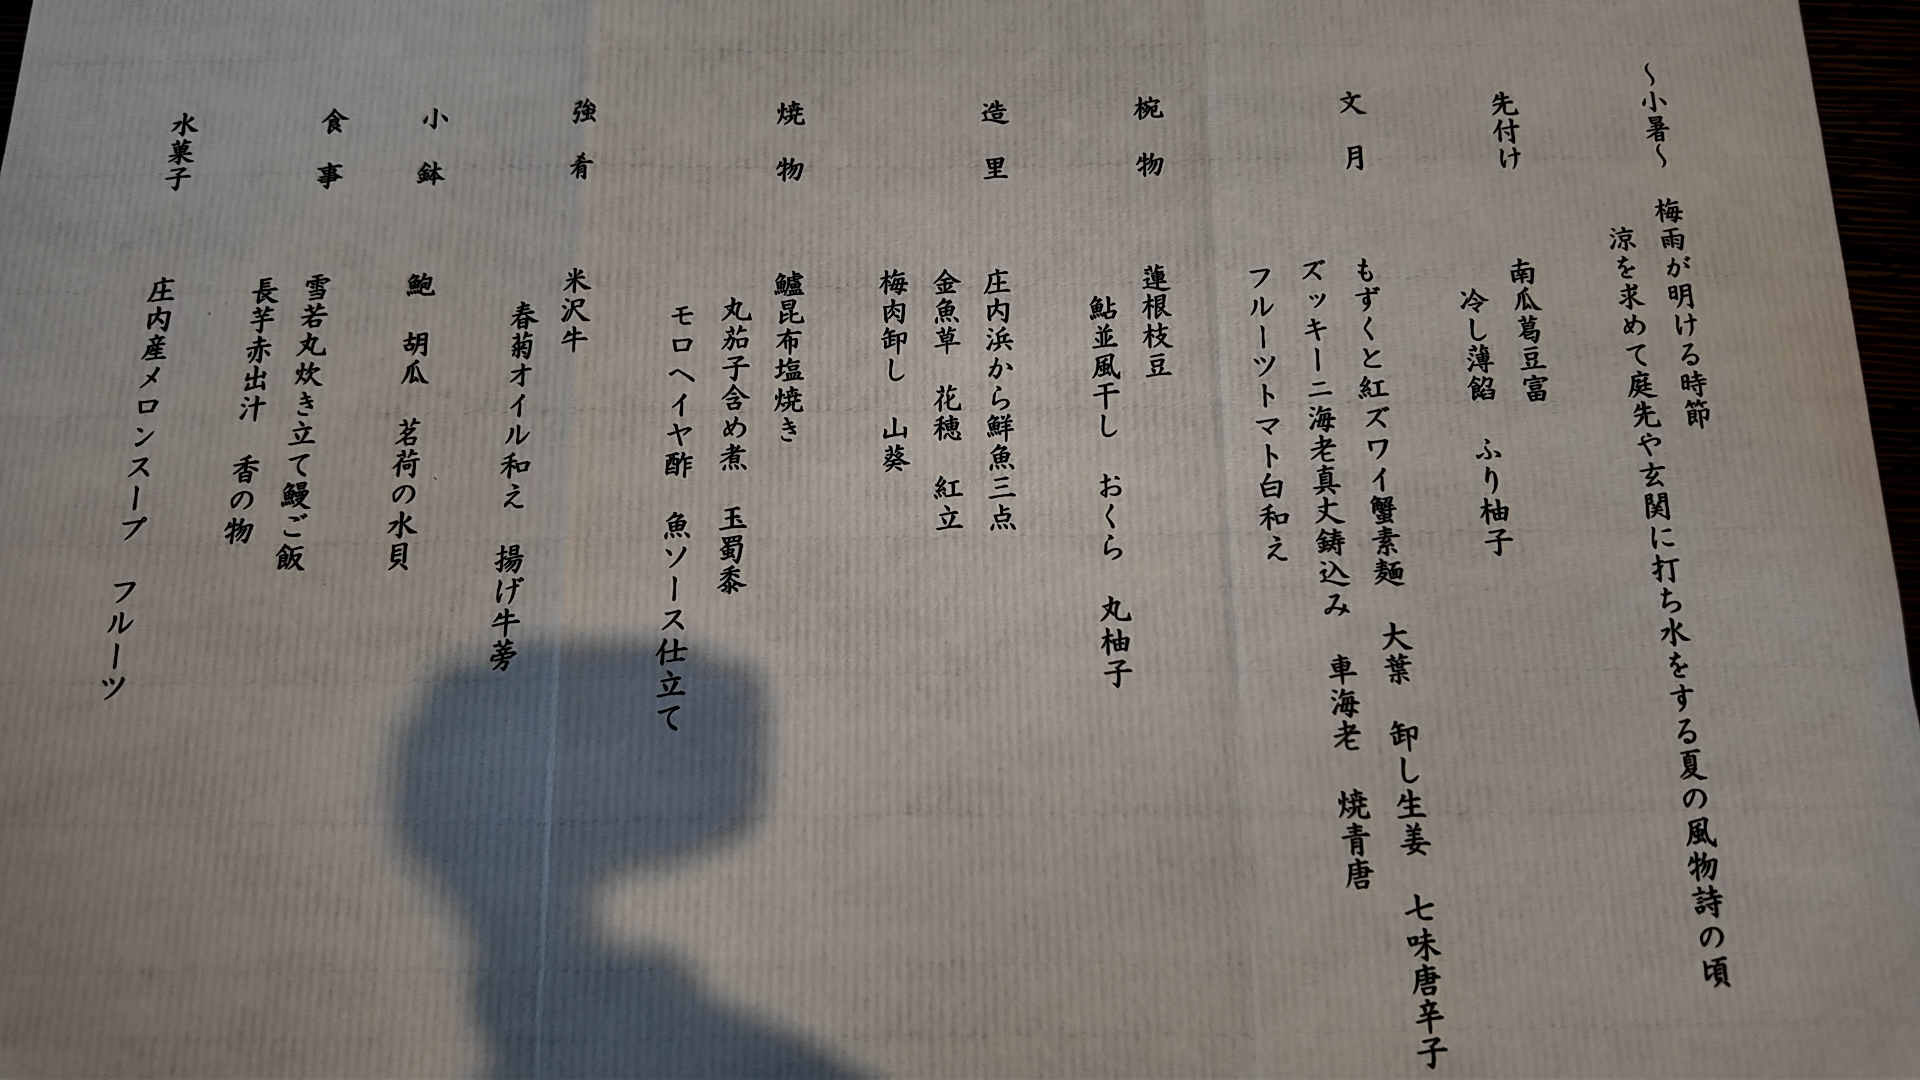 ～小暑～
梅雨が明ける時節
涼を求めて庭先や玄関に打ち水をする夏の風物詩の頃
先付け
南瓜葛豆富
冷し薄餡　ふり柚子
文月
もずくと紅ズワイ蟹素麺　大葉　卸し生姜　七味唐辛子
ズッキーニ海老真丈鋳込み　車海老　焼青唐
フルーツトマト白和え
椀物
蓮根枝豆
鮎並風干し　おくら　丸柚子
造里
庄内浜から鮮魚三点
金魚草　花穂　紅立
梅肉卸し　山葵
焼物
鱸昆布塩焼き
丸茄子含め煮　玉蜀黍
モロヘイヤ酢　魚ソース仕立て
強肴
米沢牛
春菊オイル和え　揚げ牛蒡
小鉢
鮑　胡瓜　茗荷の水貝
食事
雪若丸炊き立て鰻ご飯
長芋赤出汁　香の物
水菓子
庄内産メロンスープ　フルーツ